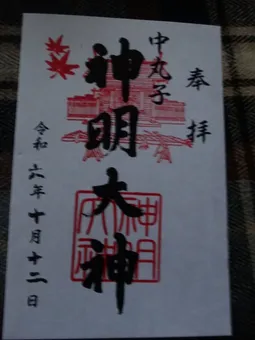 奉拝
中丸子
神明大神
神明
大神
令和六年十月十二日